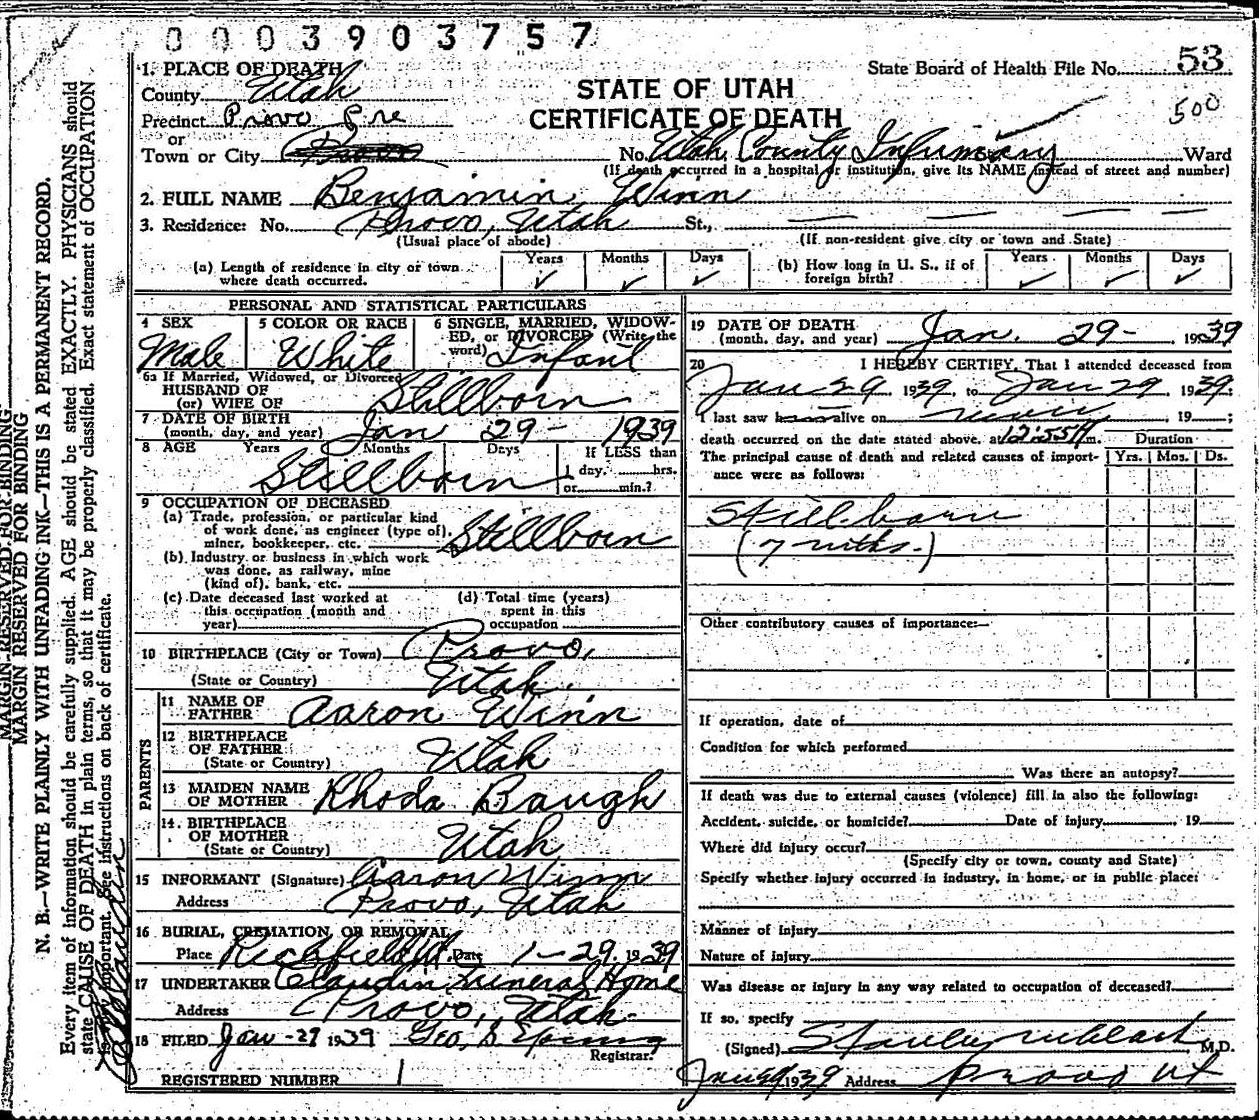 0003903757
State Board of Health File No. 53
500
STATE OF UTAH
CERTIFICATE OF DEATH
1. PLACE OF DEATH
County Utah
Precinct Provo Pre
or
Town or City Provo No. Utah County Infirmary Ward
(If death occurred in a hospital or institution, give its NAME instead of street and number)
2. FULL NAME Benjamin Winn
3. Residence: No. Provo, Utah St.,
(Usual place of abode) (If non-resident give city or town and State)
(a) Length of residence in city or town where death occurred. Years Months Days
(b) How long in U. S., if of foreign birth? Years Months Days
PERSONAL AND STATISTICAL PARTICULARS
4 SEX Male
5 COLOR OR RACE White
6 SINGLE, MARRIED, WIDOWED, or DIVORCED (Write the word) Infant
6a If Married, Widowed, or Divorced
HUSBAND OF
(or) WIFE OF Stillborn
7 DATE OF BIRTH
(month, day, and year) Jan 29- 1939
8 AGE Years Months Days If LESS than
1 day, hrs.
or min.?
Stillborn
9 OCCUPATION OF DECEASED
(a) Trade, profession, or particular kind
of work done, as engineer (type of),
miner, bookkeeper, etc. Stillborn
(b) Industry or business in which work
was done, as railway, mine
(kind of), bank, etc.
(c) Date deceased last worked at
this occupation (month and
year)
(d) Total time (years)
spent in this
occupation
10 BIRTHPLACE (City or Town) Provo,
(State or Country) Utah.
PARENTS
11 NAME OF
FATHER Aaron Winn
12 BIRTHPLACE
OF FATHER
(State or Country) Utah
13 MAIDEN NAME
OF MOTHER Rhoda Baugh
14. BIRTHPLACE
OF MOTHER
(State or Country) Utah
15 INFORMANT (Signature) Aaron Winn
Address Provo, Utah
16 BURIAL, CREMATION, OR REMOVAL
Place Richfield Ut. Date 1-29, 1939
17 UNDERTAKER Claudin Funeral Home
Address Provo, Utah.
18 FILED Jan-29 1939 Geo. S. Young
Registrar.
REGISTERED NUMBER 1
19 DATE OF DEATH
(month, day, and year) Jan. 29- 1939
20 I HEREBY CERTIFY, That I attended deceased from
Jan 29 1939, to Jan 29, 1939.
I last saw him alive on 19 ;
death occurred on the date stated above, at 12:55 A m.
The principal cause of death and related causes of import-
ance were as follows:
Duration
Yrs. Mos. Ds.
Stillborn
(7 mths.)
Other contributory causes of importance:—
If operation, date of
Condition for which performed
Was there an autopsy?
If death was due to external causes (violence) fill in also the following:
Accident, suicide, or homicide? Date of injury , 19
Where did injury occur?
(Specify city or town, county and State)
Specify whether injury occurred in industry, in home, or in public place:
Manner of injury
Nature of injury
Was disease or injury in any way related to occupation of deceased?
If so, specify
(Signed) Stanley M.D.
Jan 29 1939 Address Provo Ut
MARGIN RESERVED FOR BINDING
MARGIN RESERVED FOR BINDING
N. B.—WRITE PLAINLY WITH UNFADING INK—THIS IS A PERMANENT RECORD.
Every item of information should be carefully supplied. AGE should be stated EXACTLY. PHYSICIANS should
state CAUSE OF DEATH in plain terms, so that it may be properly classified. Exact statement of OCCUPATION
is very important. See instructions on back of certificate.